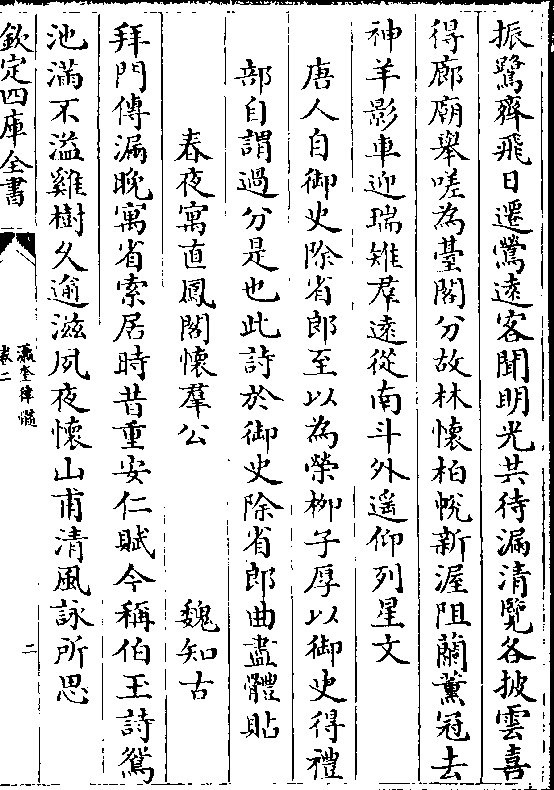 振鷺齊飛日遷鶯逺客聞明光共待漏清覽各披雲喜
得廊廟舉嗟為臺閣分故林懷柏恱新渥阻蘭薰冠去
神羊影車迎瑞雉群逺從南斗外遥仰列星文
唐人自御史除省郎至以為榮栁子厚以御史得禮
部自謂過分是也此詩於御史除省郎曲盡體貼
春夜寓直鳳閣懷羣公
魏知古
拜門傳漏晚寓省索居時昔重安仁賦今稱伯玉詩鴛
池滿不溢雞樹久逾滋夙夜懷山甫清風詠所思
欽定四庫全書
瀛奎律髓
卷二
二